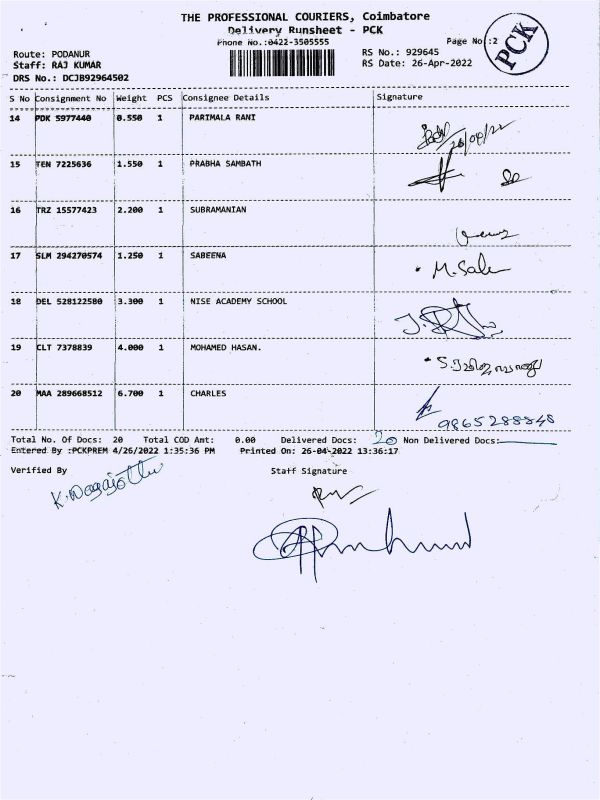 THE PROFESSIONAL COURIERS, Coimbatore
Delivery Runsheet - PCK
Phone No.:0422-3505555
Page No :2
PCK
Route: PODANUR
RS No.: 929645
Staff: RAJ KUMAR
RS Date: 26-Apr-2022
DRS No.: DCJB92964502
S No Consignment No Weight PCS Consignee Details Signature
14 PDK 5977440 0.550 1 PARIMALA RANI
26/04/22
15 TEN 7225636 1.550 1 PRABHA SAMBATH
16 TRZ 15577423 2.200 1 SUBRAMANIAN
17 SLM 294270574 1.250 1 SABEENA
M.Sale
18 DEL 528122580 3.300 1 NISE ACADEMY SCHOOL
19 CLT 7378839 4.000 1 MOHAMED HASAN.
20 MAA 289668512 6.700 1 CHARLES
9865288848
Total No. Of Docs: 20 Total COD Amt: 0.00 Delivered Docs: 20 Non Delivered Docs:
Entered By :PCKPREM 4/26/2022 1:35:36 PM Printed On: 26-04-2022 13:36:17
Verified By Staff Signature